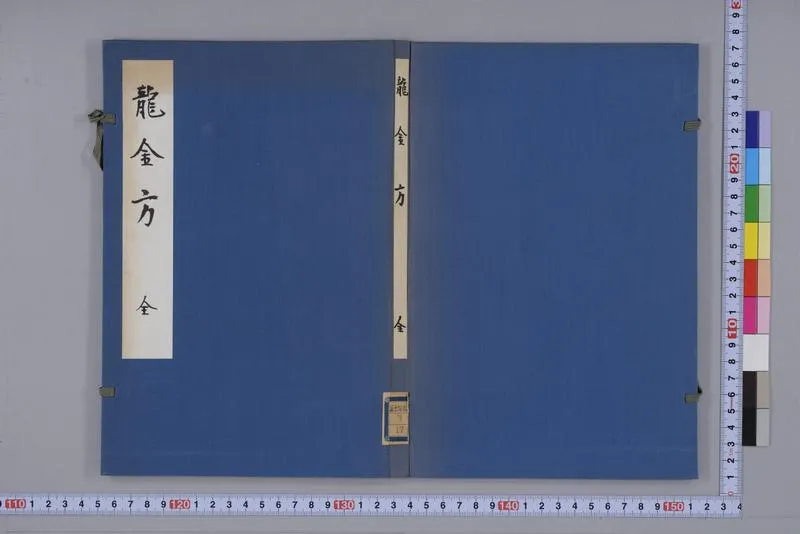 龍金方
全
龍金方
全
7
17
110 1 2 3 4 5 6 7 8 9 120 1 2 3 4 5 6 7 8 9 130 1 2 3 4 5 6 7 8 9 140 1 2 3 4 5 6 7 8 9 150 1 2 3 4
1 2 3 4 5 6 7 8 9 10 1 2 3 4 5 6 7 8 9 20 1 2 3 4 5 6 7 8 9